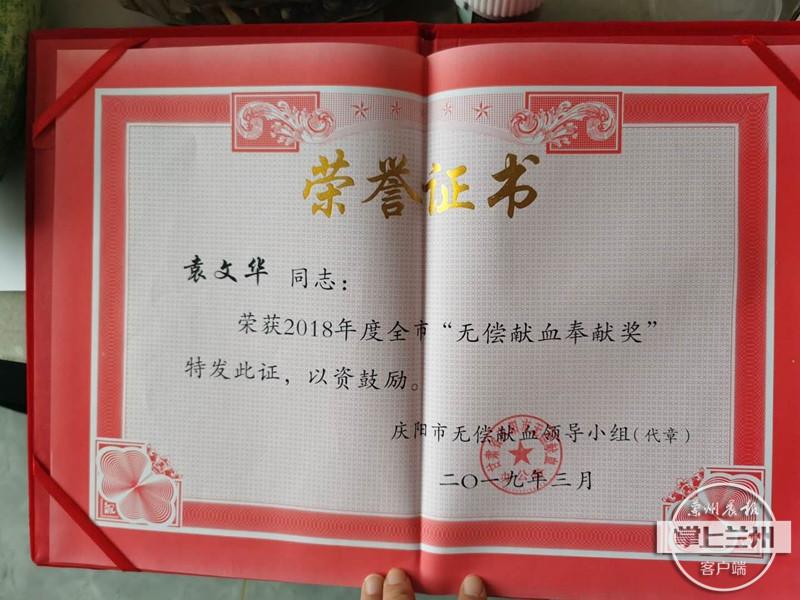 荣誉证书
袁文华 同志：
荣获2018年度全市“无偿献血奉献奖”
特发此证，以资鼓励。
庆阳市无偿献血领导小组（代章）
二〇一九年三月
兰州晨报
掌上兰州
客户端